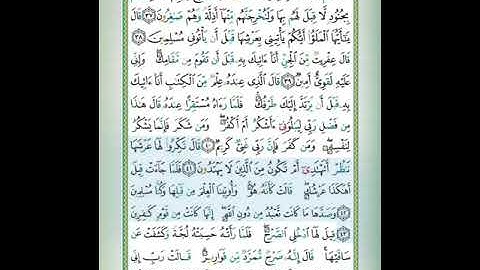 بِجُنُودٍ لَّا قِبَلَ لَهُم بِهَا وَلَنُخْرِجَنَّهُم مِّنْهَا أَذِلَّةً وَهُمْ صَٰغِرُونَ ٣٧ قَالَ
يَٰٓأَيُّهَا ٱلْمَلَؤُا۟ أَيُّكُمْ يَأْتِينِى بِعَرْشِهَا قَبْلَ أَن يَأْتُونِى مُسْلِمِينَ ٣٨
قَالَ عِفْرِيتٌ مِّنَ ٱلْجِنِّ أَنَا۠ ءَاتِيكَ بِهِۦ قَبْلَ أَن تَقُومَ مِن مَّقَامِكَ ۖ وَإِنِّى
عَلَيْهِ لَقَوِىٌّ أَمِينٌ ٣٩ قَالَ ٱلَّذِى عِندَهُۥ عِلْمٌ مِّنَ ٱلْكِتَٰبِ أَنَا۠ ءَاتِيكَ
بِهِۦ قَبْلَ أَن يَرْتَدَّ إِلَيْكَ طَرْفُكَ ۚ فَلَمَّا رَءَاهُ مُسْتَقِرًّا عِندَهُۥ قَالَ هَٰذَا
مِن فَضْلِ رَبِّى لِيَبْلُوَنِىٓ ءَأَشْكُرُ أَمْ أَكْفُرُ ۖ وَمَن شَكَرَ فَإِنَّمَا يَشْكُرُ
لِنَفْسِهِۦ ۖ وَمَن كَفَرَ فَإِنَّ رَبِّى غَنِىٌّ كَرِيمٌ ٤٠ قَالَ نَكِّرُوا۟ لَهَا عَرْشَهَا
نَنظُرْ أَتَهْتَدِىٓ أَمْ تَكُونُ مِنَ ٱلَّذِينَ لَا يَهْتَدُونَ ٤١ فَلَمَّا جَآءَتْ قِيلَ
أَهَٰكَذَا عَرْشُكِ ۖ قَالَتْ كَأَنَّهُۥ هُوَ ۚ وَأُوتِينَا ٱلْعِلْمَ مِن قَبْلِهَا وَكُنَّا مُسْلِمِينَ
٤٢ وَصَدَّهَا مَا كَانَت تَّعْبُدُ مِن دُونِ ٱللَّهِ ۖ إِنَّهَا كَانَتْ مِن قَوْمٍ كَٰفِرِينَ
٤٣ قِيلَ لَهَا ٱدْخُلِى ٱلصَّرْحَ ۖ فَلَمَّا رَأَتْهُ حَسِبَتْهُ لُجَّةً وَكَشَفَتْ عَن
سَاقَيْهَا ۚ قَالَ إِنَّهُۥ صَرْحٌ مُّمَرَّدٌ مِّن قَوَارِيرَ ۗ قَالَتْ رَبِّ إِنِّى